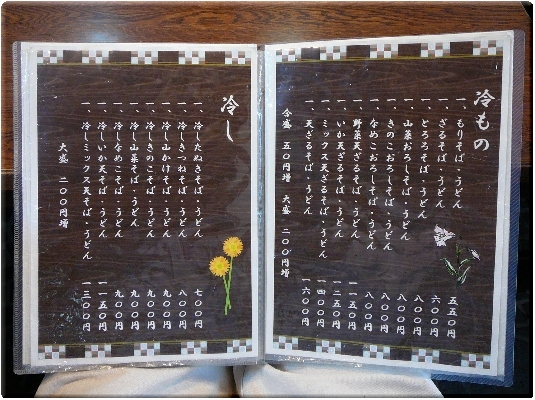 冷もの
一、もりそば・うどん 五五〇円
一、ざるそば・うどん 六〇〇円
一、とろろそば・うどん 八〇〇円
一、山菜おろしそば・うどん 八〇〇円
一、きのこおろしそば・うどん 八〇〇円
一、なめこおろしそば・うどん 八〇〇円
一、野菜天ざるそば・うどん 一一五〇円
一、いか天ざるそば・うどん 一二五〇円
一、ミックス天ざるそば・うどん 一四〇〇円
一、天ざるそば・うどん 一六〇〇円
合盛 五〇円増 大盛 二〇〇円増
冷し
一、冷したぬきそば・うどん 七〇〇円
一、冷しきつねそば・うどん 八〇〇円
一、冷し山かけそば・うどん 九〇〇円
一、冷しきのこそば・うどん 九〇〇円
一、冷し山菜そば・うどん 九〇〇円
一、冷しなめこそば・うどん 九〇〇円
一、冷しいか天そば・うどん 一一五〇円
一、冷しミックス天そば・うどん 一三〇〇円
大盛 二〇〇円増